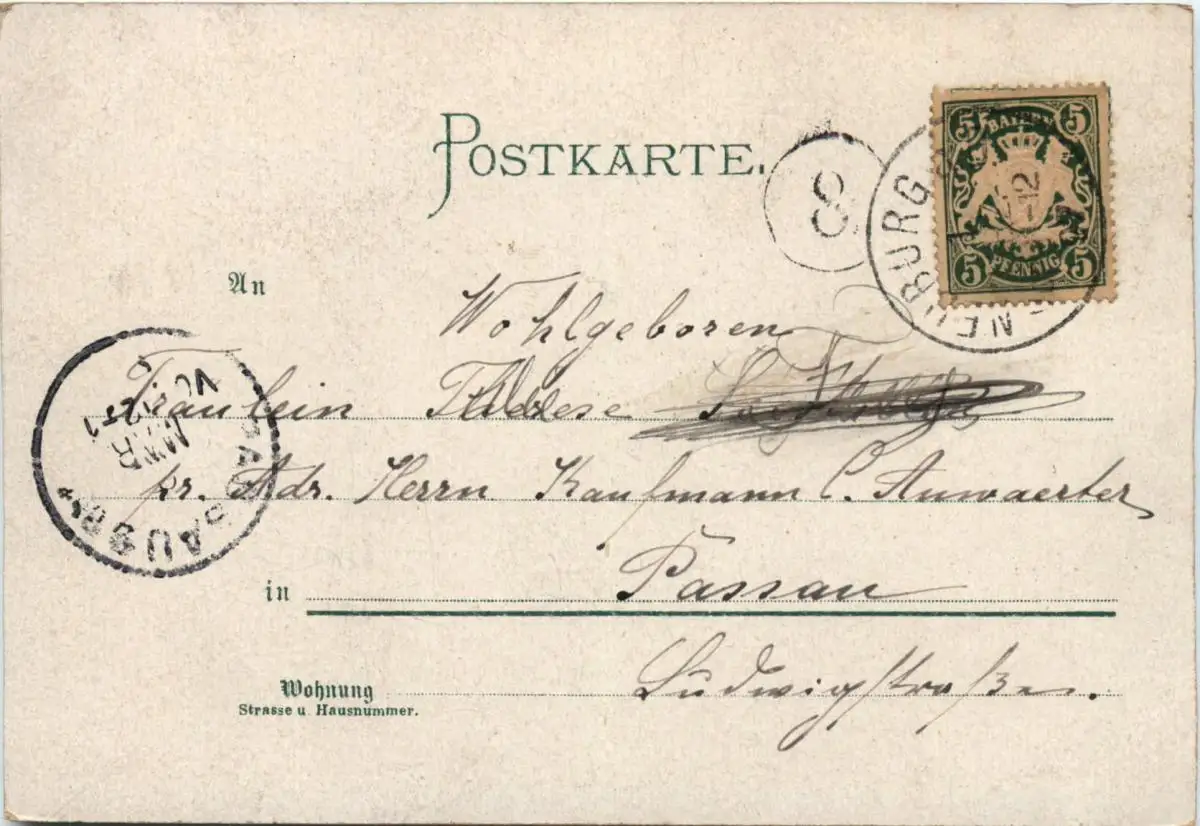 POSTKARTE.
8
5 BAYERN 5
5 PFENNIG 5
NEUBURG
-12
An
Wohlgeboren
Fräulein Therese
pr. Adr. Herrn Kaufmann C. Anwaerter
in Passau
Wohnung Ludwigstraße.
Strasse u. Hausnummer.
PASSAU
MAR